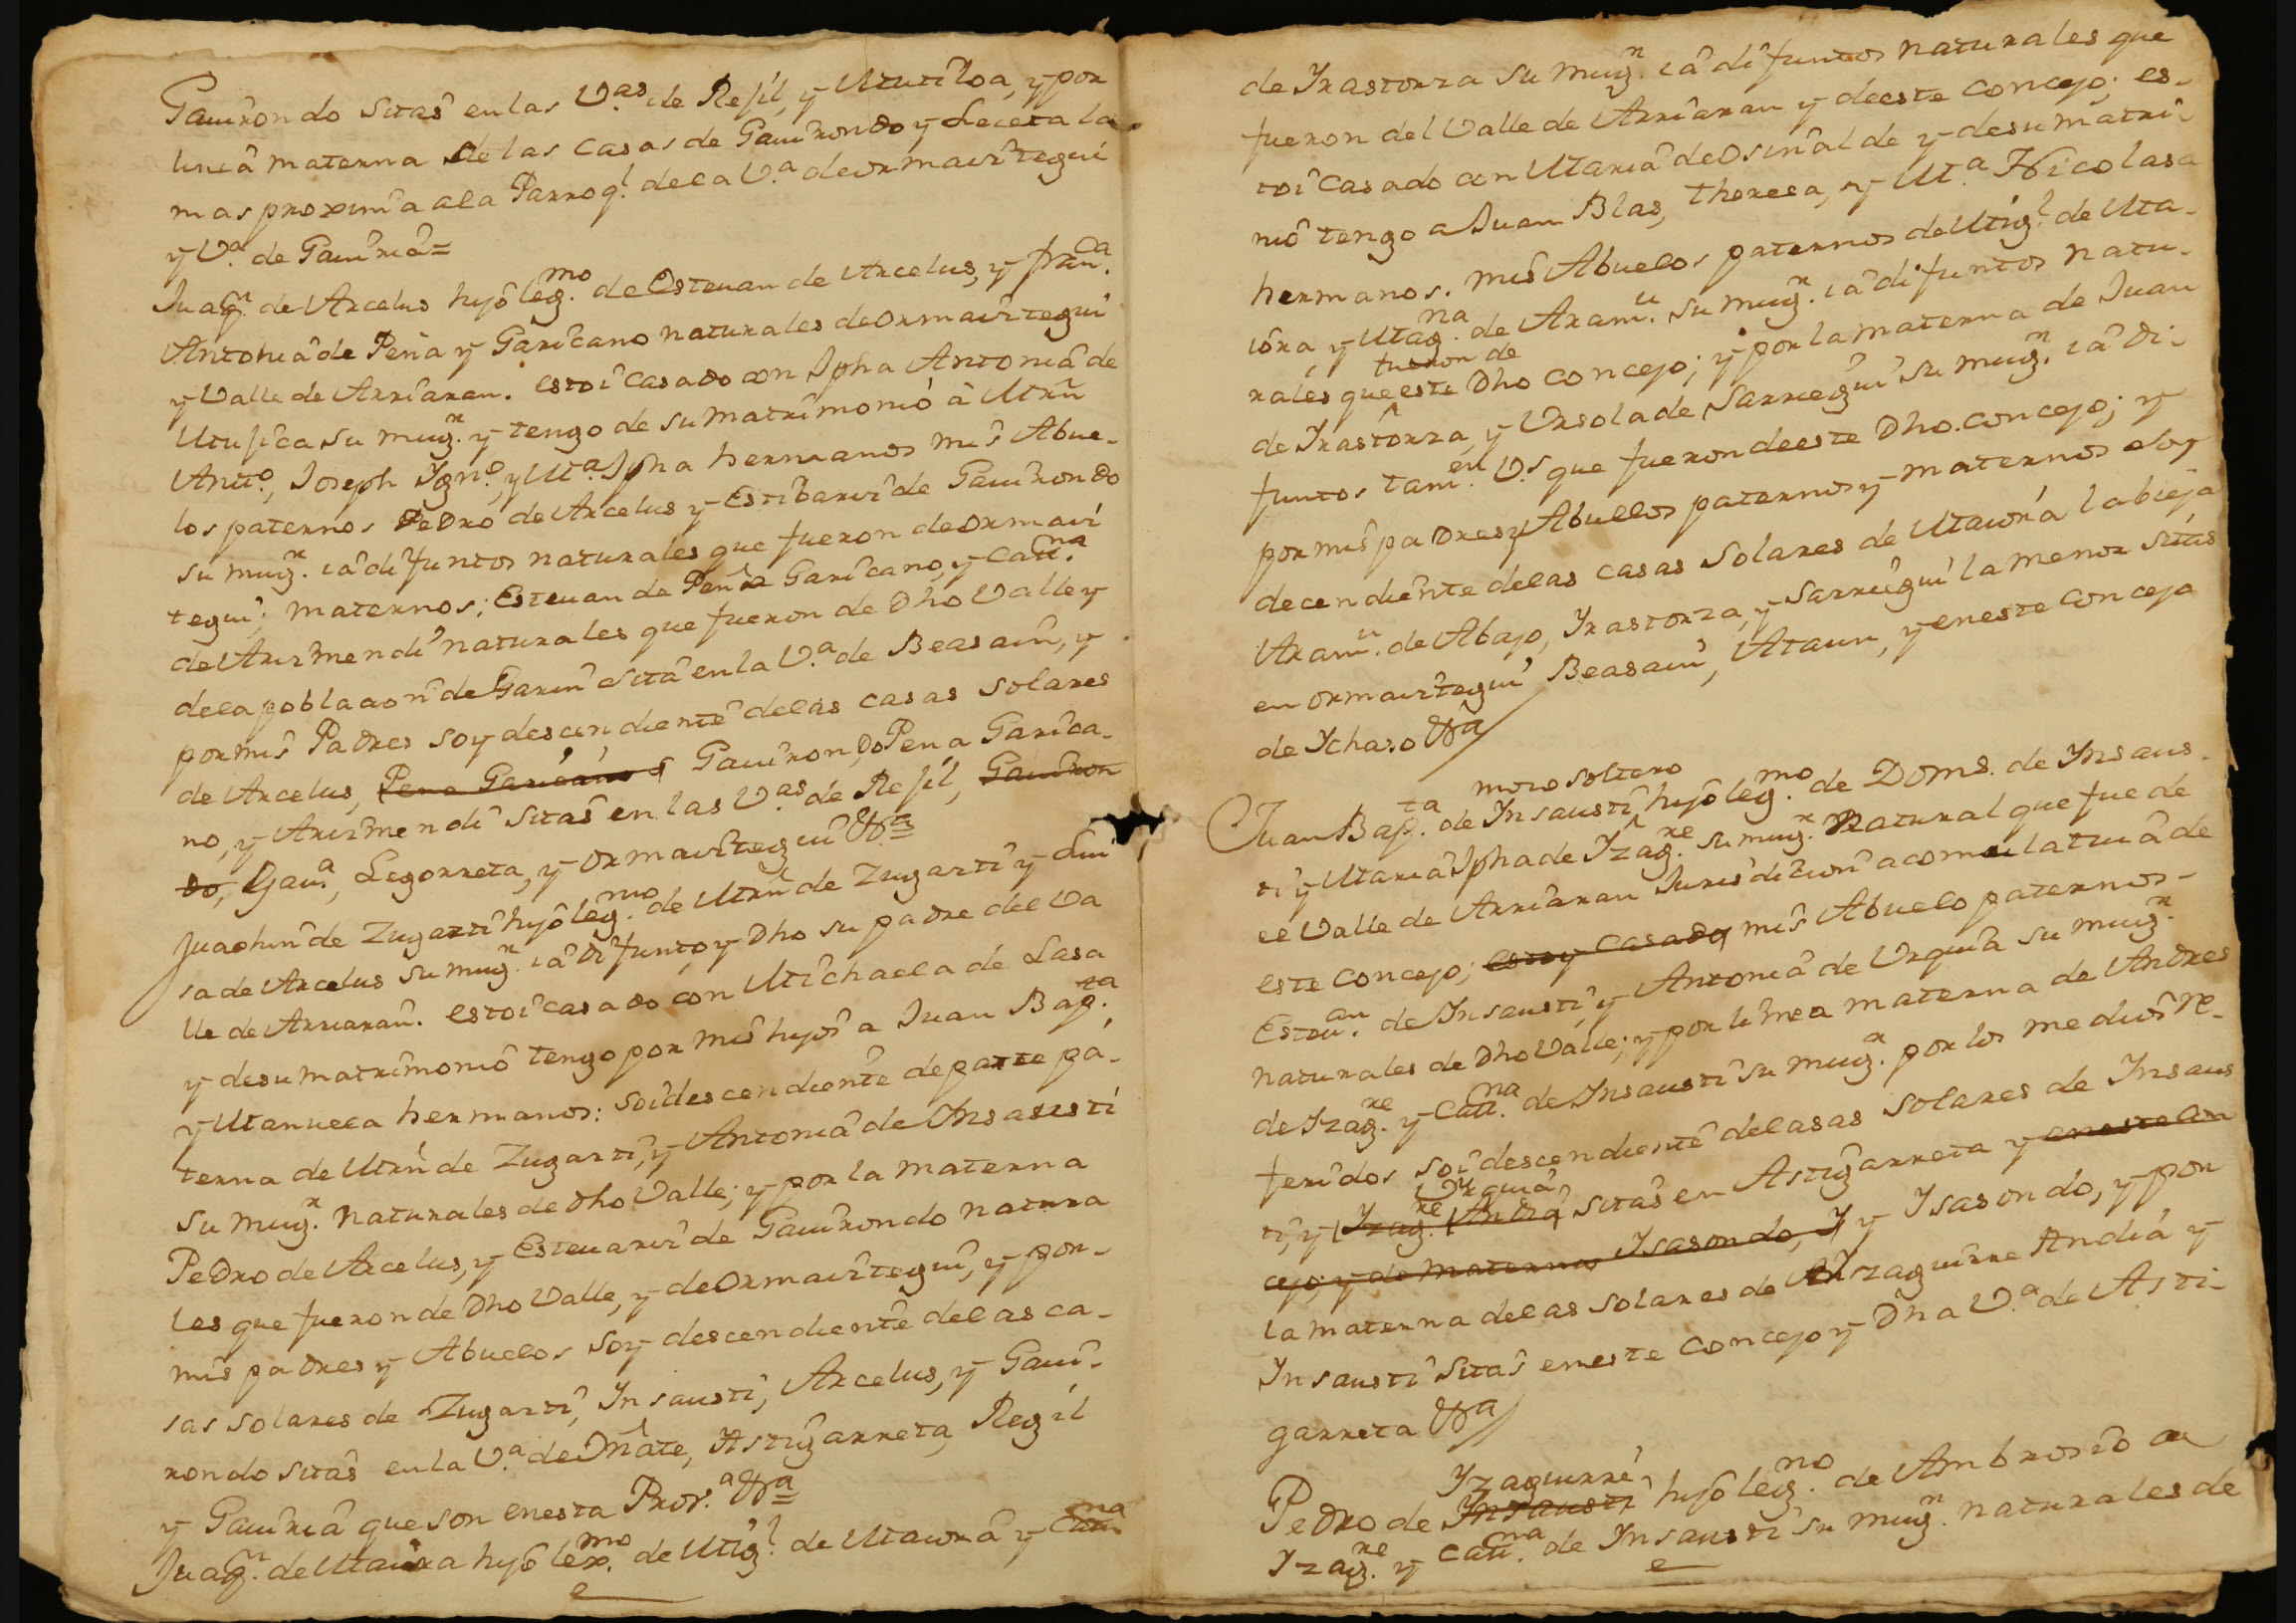 Gauirondo sitas en las V.as de Resil, y Mutiloa, y por
linea materna de las casas de Gauirondo y Leceta la
mas proxima a la Parroq.l de la V.a de ormaiztegui
y V.a de Gauiria=
Juaq.n de Arcelus hijo leg.mo de Esteuan de Arcelus, y fran.ca
Antonia de Peña y Garicano naturales de ormaiztegui
y Valle de Arriaran. estoi casado con Jpha Antonia de
Mujica su mug.r y tengo de su matrimonio à Mrn
Antt.o, Joseph Ign.o, y M.a Jpha hermanos mis Abue-
los paternos Pedro de Arcelus y Estibariz de Gauirondo
su mug.r ia difuntos naturales que fueron de ormaiz
tegui; maternos; Esteuan de Peña Garicano, y Catt.na
de Arizmendi naturales que fueron de dho Valle y
de la poblacion de Garin sita en la V.a de Beasain, y
por mis Padres soy descendiente de las casas solares
de Arcelus, Pena Garicano s Gauirondo, Pena Garica-
no, y Arizmendi sitas en las V.as de Resil, Gauiron
do, Gaui.a, Legorreta, y ormaiztegui &.a=
Juachin de Zugarti hijo leg.mo de Mrn de Zugarti y Lui
sa de Arcelus su mug.r ia difunto y dho su padre del Va
lle de Arriaran. estoi casado con Michaela de Lasa
y de su matrimonio tengo por mis hijos a Juan Bap.ta
y Manuela hermanos: soi descendiente de parte pa-
terna de Mrn de Zugarti, y Antonia de Insausti
su mug.r naturales de dho Valle; y por la materna
Pedro de Arcelus, y Esteuariz de Gauirondo natura
les que fueron de dho Valle, y de ormaiztegui, y por-
mis padres y Abuelos soy descendiente de las ca-
sas solares de Zugarti, Insausti, Arcelus, y Gaui-
rondo sitas en la V.a de Oñate, Astigarreta, Regil
y Gauiria que son en esta Prov.a &.a=
Juaq.n de Maiora hijo lex.mo de Mig.l de Maiora y Catt.na
de Irastorza su mug.r ia difuntos naturales que
fueron del Valle de Arriaran y de este concejo; es-
toi casado con Maria de Osinalde y de su matri-
mo tengo a Juan Blas, Theresa, y M.a Nicolasa
hermanos. mis Abuelos paternos de Mig.l de Ma-
iora y Mag.na de Aram.u su mug.r ia difuntos natu-
fueron de
rales que este dho concejo; y por la materna de Juan
de Irastorza, y Ursola de Sarriegui su mug.r ia di-
funtos tam.en V.s que fueron de este dho. concejo; y
por mis padres y Abuelos paternos y maternos soy
decendiente de las casas solares de Maiora la bieja
Aram.u de Abajo, Irastorza, y Sarriegui la menor sitas
en ormaiztegui Beasain, Ataun, y en este concejo
de Ychaso &.a
mozo soltero
Juan Bap.ta de Insausti hijo leg.mo de Dom.s de Insaus-
ti y Maria Jpha de Izag.re su mug.r Natural que fue de
el Valle de Arriaran Jurisdicion acomulatiua de
este concejo; estoy casado mis Abuelo paternos-
Esteu.an de Insausti, y Antonia de Urquia su mug.r
naturales de dho Valle; y por linea materna de Andres
de Izag.re y Catt.na de Insausti su mug.r por los medios re-
feridos soi descendiente de las casas solares de Insaus
Urquia
ti, y Izag.re Andia sitas en Astigarreta y en este con
cejo, y de maternos Isasondo, y y Isasondo, y por
la materna de las solares de Yzaguirre Andia y
Insausti sitas en este concejo y dha V.a de Asti-
garreta &.a
Izaguirre
Pedro de Insausti hijo leg.mo de Ambrosio de
Izag.re y Catt.na de Insausti su mug.r naturales de